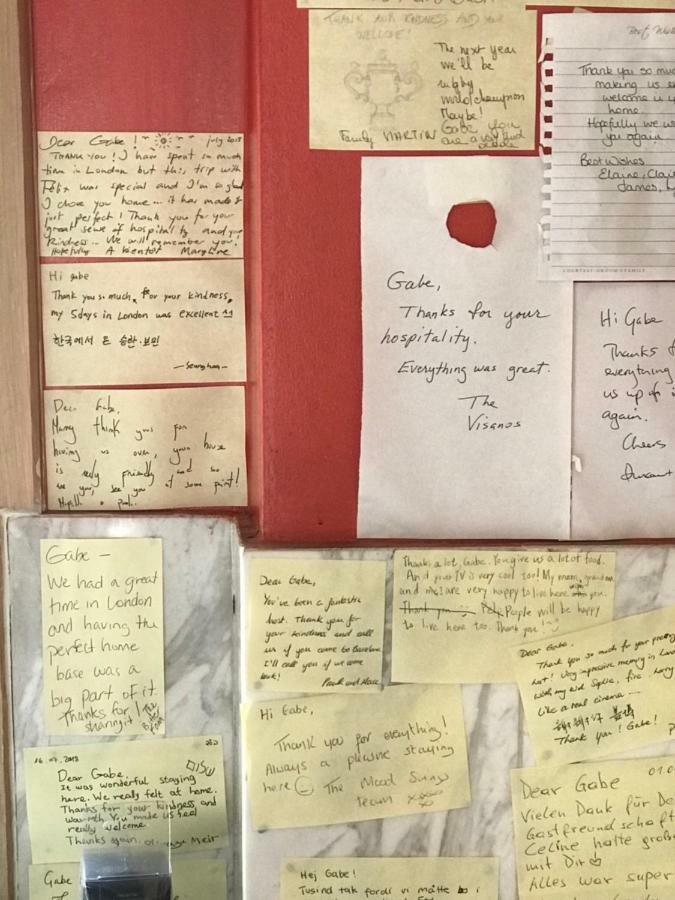 THANK YOUR KINDNESS AND YOUR
WELCOME!
The next year
we'll be
rugby
worldchampion
Maybe!
Gabe you
are a very good
Family MARTIN
Best Wishes
Thank you so much
making us
welcome in
home.
Hopefully we
you again
Best Wishes
Elaine, Clai
James,
Dear Gabe! july 2018
THANK YOU! I have spent so much
time in London but this trip with
Félix was special and I'm so glad
I chose you home... it has made it
just perfect! Thank you for your
great sense of hospitality and your
kindness... We will remember you!
Hopefully A bientôt Maryline
Hi gabe
Thank you so much, for your kindness,
my 5days in London was excellent ^^
한국에서 온 승한.보민
- Seunghan -
Dear Gabe,
Many think you for
having us over, your house
is really friendly and so
are you, see you at some point!
Gabe,
Thanks for your
hospitality.
Everything was great.
The
Visanos
Hi Gabe
Thanks f
everything
us up
again.
Cheers
Gabe -
We had a great
time in London
and having the
perfect home
base was a
big part of it.
Thanks for
sharing it!
Dear Gabe,
You've been a fantastic
host. Thank you for
your kindness and call
us if you come to Barcelona
I'll call you if we come
back!
Thanks a lot, Gabe. You give us a lot of food.
And your TV is very cool too! My mom, grandma
and me! are very happy to live here you.
Thank you People will be happy
to live here too. Thank you!
Dear Gabe.
Thank you so much for your
hart! Very impressive memory in Lon
with my kid Sophie, fire
Like a real cinema
Thank you! Gabe!
Hi Gabe,
Thank you for everything!
Always a pleasure staying
here The Mad Sunny
team xxxx
16.07.2018
שלום
Dear Gabe,
It was wonderful staying
here. We really felt at home.
Thanks for your kindness and
warmth. You made us feel
really welcome.
Thanks again, Meir
Dear Gabe 01.0
Vielen Dank für De
Gastfreundschaft
Celine hatte große
mit Dir
Alles war super
Gabe
Hej Gabe!
Tusind tak fordi vi måtte bo i